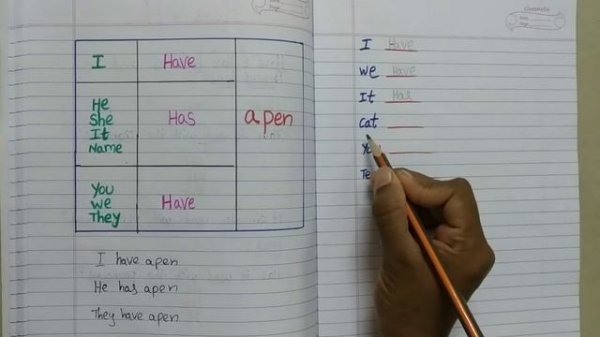 I Have
He
She
It
Name
Has
a pen
You
We
They
Have
I have a pen
He has a pen
They have a pen
I Have
We Have
It Has
Cat